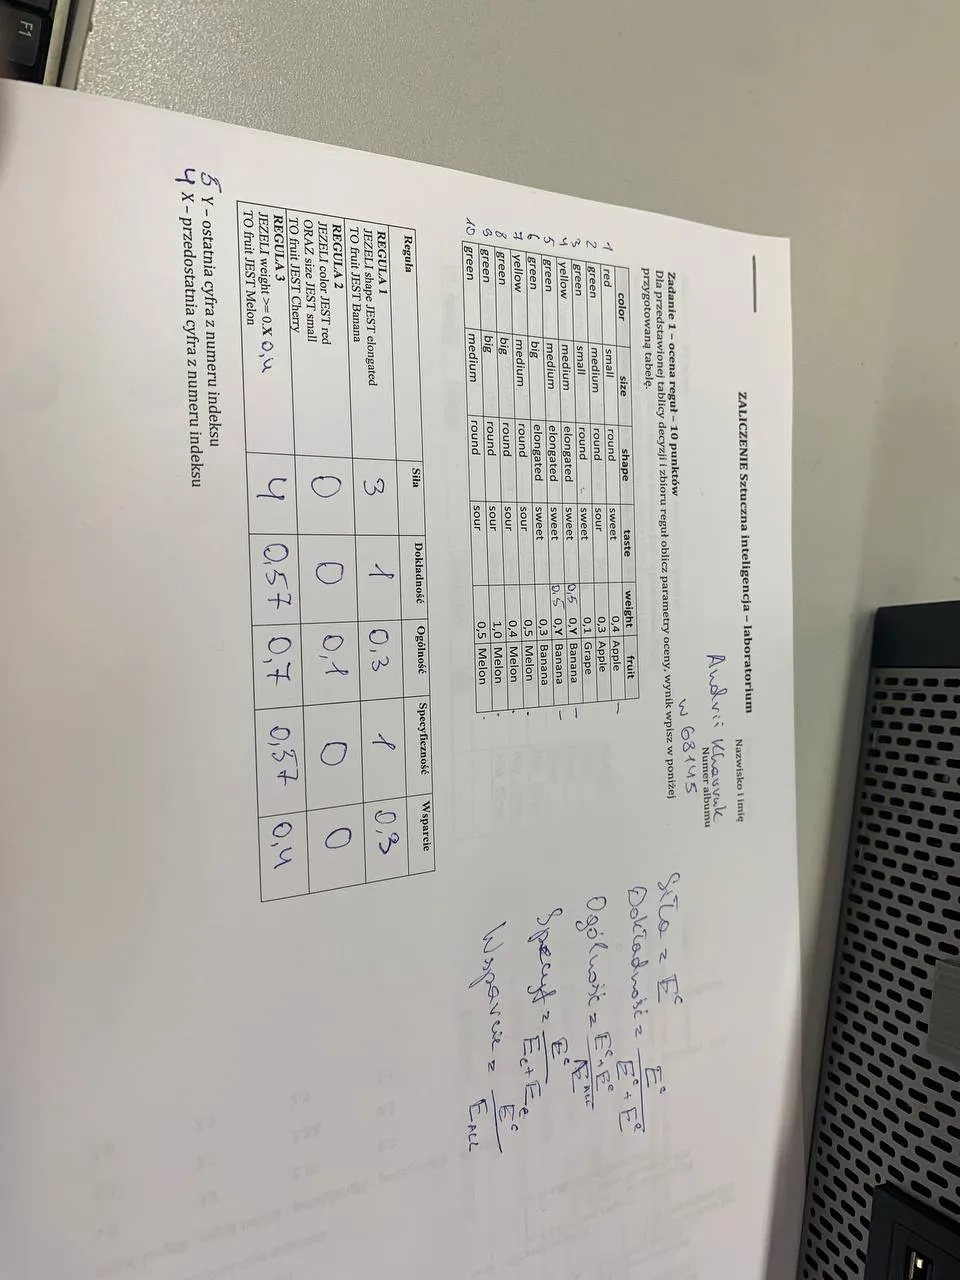 F1
ZALICZENIE Sztuczna inteligencja – laboratorium
Nazwisko i imię
Andrii
Numer albumu
w 68145
Zadanie 1 – ocena reguł – 10 punktów
Dla przedstawionej tablicy decyzji i zbioru reguł oblicz parametry oceny, wynik wpisz w poniżej
przygotowaną tabelę.
color size shape taste weight fruit
1 red small round sweet 0,4 Apple
2 green medium round sour 0,3 Apple
3 green small round sweet 0,1 Grape
4 yellow medium elongated sweet 0,5 0,Y Banana
5 green medium elongated sweet 0,5 0,Y Banana
6 green big elongated sweet 0,3 Banana
7 yellow medium round sour 0,5 Melon
8 green big round sour 0,4 Melon
9 green big round sour 1,0 Melon
10 green medium round sour 0,5 Melon
Reguła Siła Dokładność Ogólność Specyficzność Wsparcie
REGUŁA 1
JEŻELI shape JEST elongated
TO fruit JEST Banana
3 1 0,3 1 0,3
REGUŁA 2
JEŻELI color JEST red
ORAZ size JEST small
TO fruit JEST Cherry
0 0 0,1 0 0
REGUŁA 3
JEŻELI weight >= 0.X 0,4
TO fruit JEST Melon
4 0,57 0,7 0,37 0,4
5 Y – ostatnia cyfra z numeru indeksu
4 X – przedostatnia cyfra z numeru indeksu
Siła = Eᶜ
Dokładność = Eᶜ / Eᶜ + Eᵉ
Ogólność = Eᶜ + Eᵉ / E ALL
Specyf = Eᶜ / Ec + Ee
Wsparcie = Eᶜ / E ALL